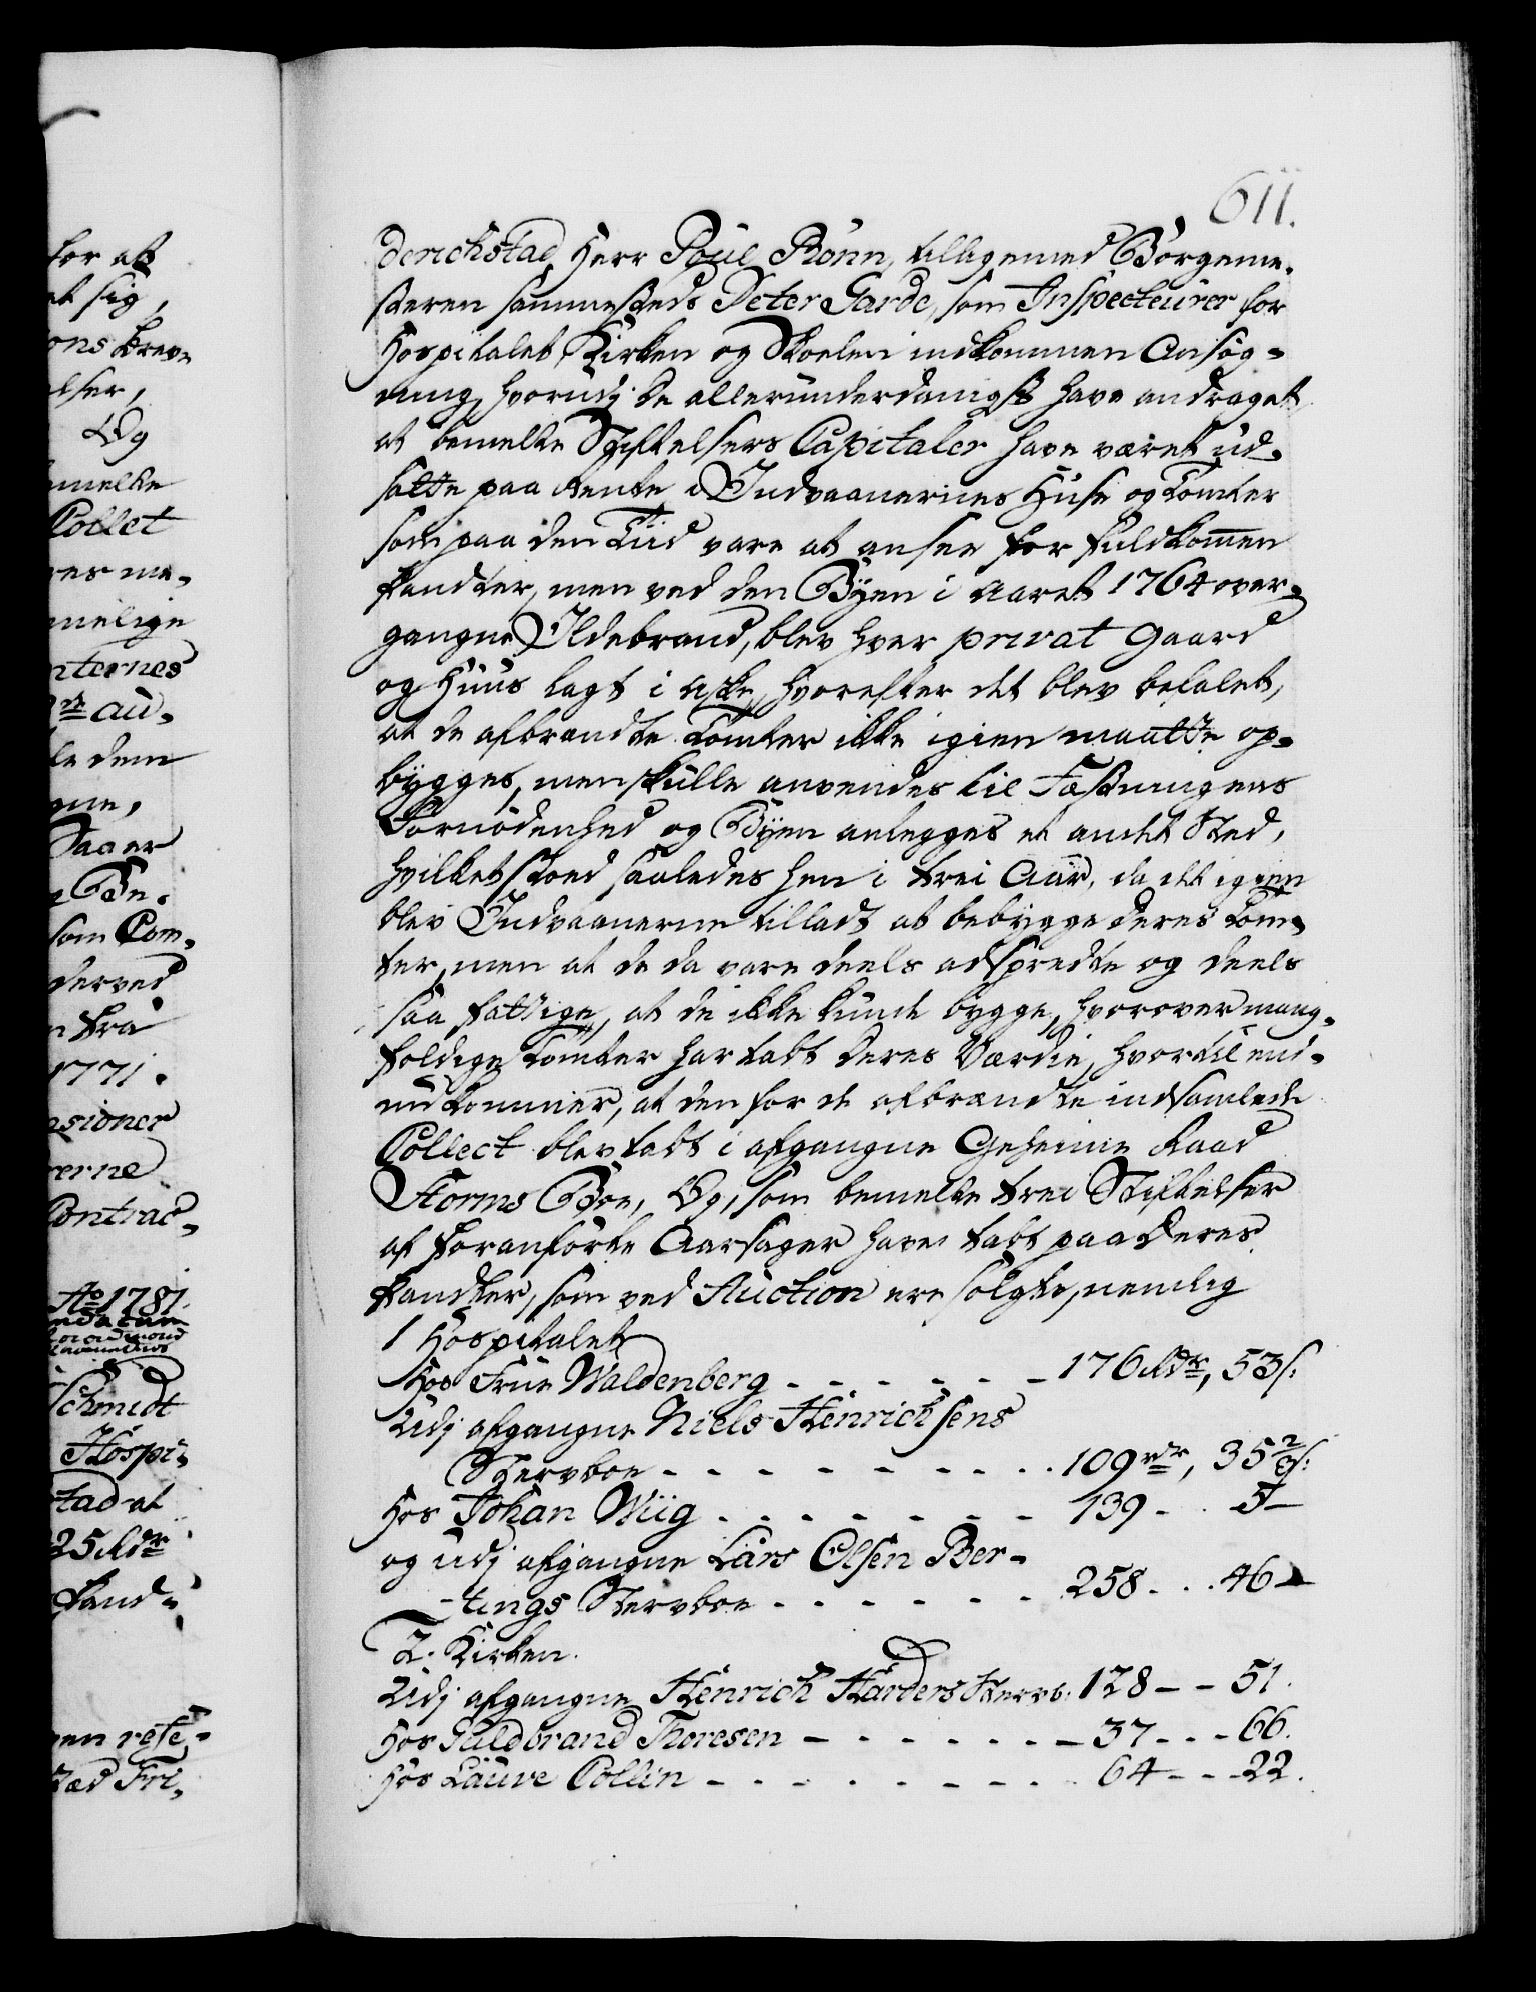 for at
at sig,
ons Kreve
elser,
Og
bemelte
Collet
res me-
melige
nternes
au-
te dem
gne,
Saaer
som Com-
derved
n fra
1771.
nsioner
rerne
Contrac-
Ao 1781.
Schmidt
Hospi-
stad at
25 Rdr
Pand-
gen rese-
Fri-
611.
derichstad Herr Poul Rönn, tilligemed Borgeme-
steren sammesteds Peter Garde, som Inspecteurer for
Hospitalet, Kirken og Skoelen indkommen Ansög-
ning, hvorudj de allerunderdanigst have andraget
at bemelte Stiftelsers Capitaler have været ud-
satte paa Rente i Indvaanernes Huse og Tomter
som paa den Tiid vare at ansee for fuldkommen
Pandter, men ved den Byen i Aaret 1764 over-
gangne Ildebrand, blev hver privat Gaard
og Huus lagt i Aske, hvorefter det blev befalet,
at de afbrændte Tomter ikke igien maatte op-
bygges, men skulle anvendes til Fæstningens
Fornödenhed og Byen anlegges et andet Sted,
hvilket stoed saaledes hen i trei Aar, da det igien
blev Indvaanerne tilladt at bebygge deres Tom-
ter, men at de da vare deels adspredte og deels
saa fattige, at de ikke kunde bygge, hvorover mang-
foldige Tomter har tabt deres Værdie, hvortil end-
nu kommer, at den for de afbrændte indsamlede
Collect blev tabt i afgangne Geheime Raad
Storms Boe, Og, som bemelte trei Stiftelser
af foranförte Aarsager have tabt paa deres
Pandter, som ved Auction ere solgte, nemlig
1 Hospitalet
Hos Frue Waldenberg - - - - - - 176 Rdr, 53 s:
Udj afgangne Niels Henrichsens
Stervboe - - - - - - - - 109 rdr, 35 2/3 s:
Hos Johan Wiig - - - - - - 139 - . 5 -
og udj afgangne Lars Olsen Ber-
tings Stervboe - - - - - - 258 - . . 46 -
2. Kirken.
Udj afgangne Henrich Harders Stervb: 128 - - 51.
Hos Guldbrand Thoresen - - - - - - - 37 - - - 66.
Hos Lauve Collin - - - - - - - - 64 - - - 22.